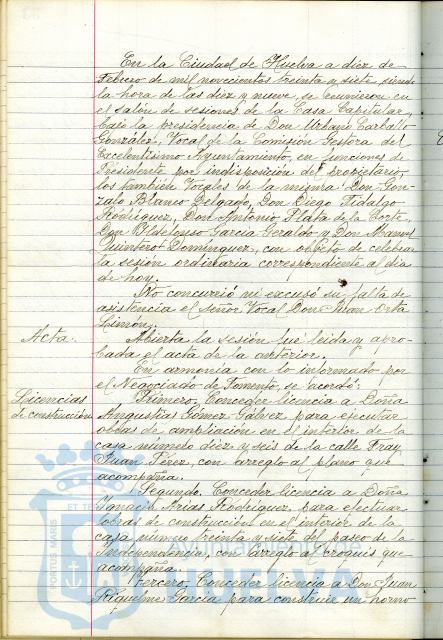 En la Ciudad de Huelva a diez de
Febrero de mil novecientos treinta y siete siendo
la hora de las diez y nueve, se reunieron en
el salón de sesiones de la Casa Capitular,
bajo la presidencia de Don Urbano Carballo
González, Vocal de la Comisión Gestora del
Excelentísimo Ayuntamiento, en funciones de
Presidente por indisposición del propietario,
los también Vocales de la misma Don Gon-
zalo Blanco Delgado, Don Diego Fidalgo
Rodríguez, Don Antonio Plata de la Corte,
Don Ildefonso García Geraldo y Don Manuel
Quintero Domínguez, con objeto de celebrar
la sesión ordinaria correspondiente al día
de hoy.
No concurrió ni excusó su falta de
asistencia el señor Vocal Don Juan Orta
Limón.
Acta. Abierta la sesión fué leida y apro-
bada el acta de la anterior.
En armonia con lo informado por
el Negociado de Fomento, se acordó:
Licencias Primero. Conceder licencia a Doña
de construcción Angustias Gómez Gálvez para ejecutar
obras de ampliación en el interior de la
casa número diez y seis de la calle Fray
Juan Pérez, con arreglo al plano que
acompaña.
Segundo. Conceder licencia a Doña
Ignacia Arias Rodríguez, para efectuar
obras de construcción en el interior de la
casa número treinta y siete del paseo de la
Independencia, con arreglo al croquis que
acompaña.
Tercero. Conceder licencia a Don Juan
Riquelme García para construir un horno
PORTUS MARIS ET TERRAE